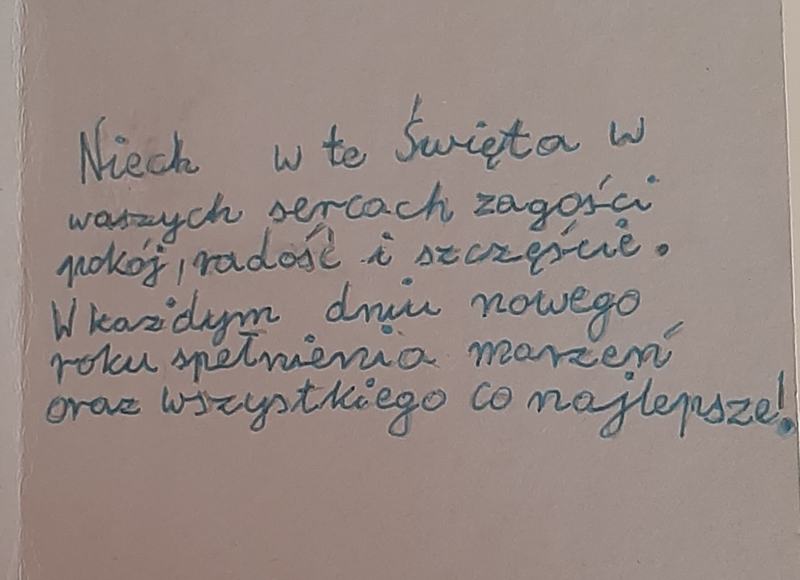 Niech w te Święta w
waszych sercach zagości
pokój, radość i szczęście.
W każdym dniu nowego
roku spełnienia marzeń
oraz wszystkiego co najlepsze!